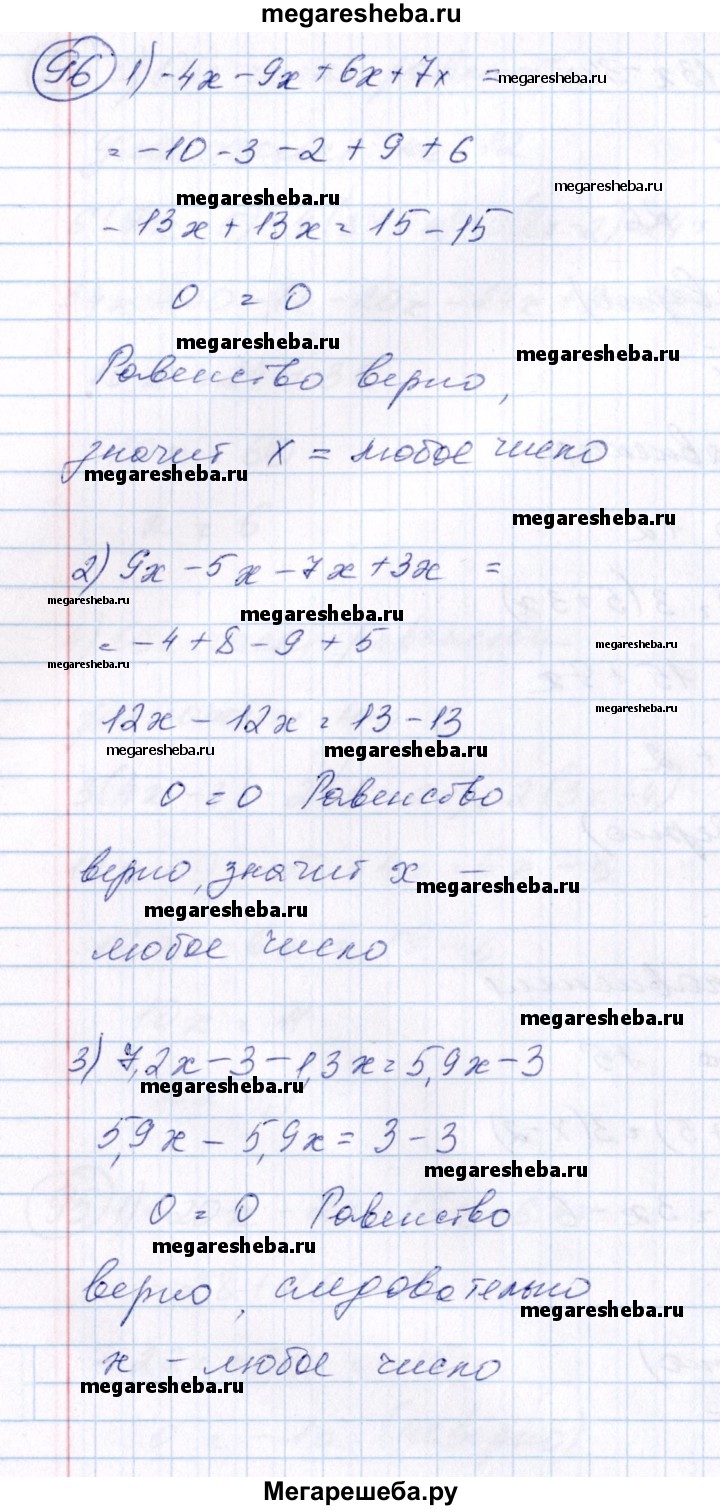 megaresheba.ru
96 1) -4x - 9x + 6x + 7x = megaresheba.ru
= -10 - 3 - 2 + 9 + 6
megaresheba.ru
megaresheba.ru
-13x + 13x = 15 - 15
0 = 0
megaresheba.ru
megaresheba.ru
Равенство верно,
значит x = любое число
megaresheba.ru
megaresheba.ru
2) 9x - 5x - 7x + 3x =
megaresheba.ru
megaresheba.ru
= -4 + 8 - 9 + 5
megaresheba.ru
megaresheba.ru
megaresheba.ru
12x - 12x = 13 - 13
megaresheba.ru
megaresheba.ru
0 = 0 Равенство
верно, значит x -
megaresheba.ru
megaresheba.ru
любое число
megaresheba.ru
3) 7,2x - 3 - 1,3x = 5,9x - 3
megaresheba.ru
5,9x - 5,9x = 3 - 3
megaresheba.ru
0 = 0 Равенство
megaresheba.ru
верно, следовательно
megaresheba.ru
x - любое число
megaresheba.ru
Мегарешеба.ру